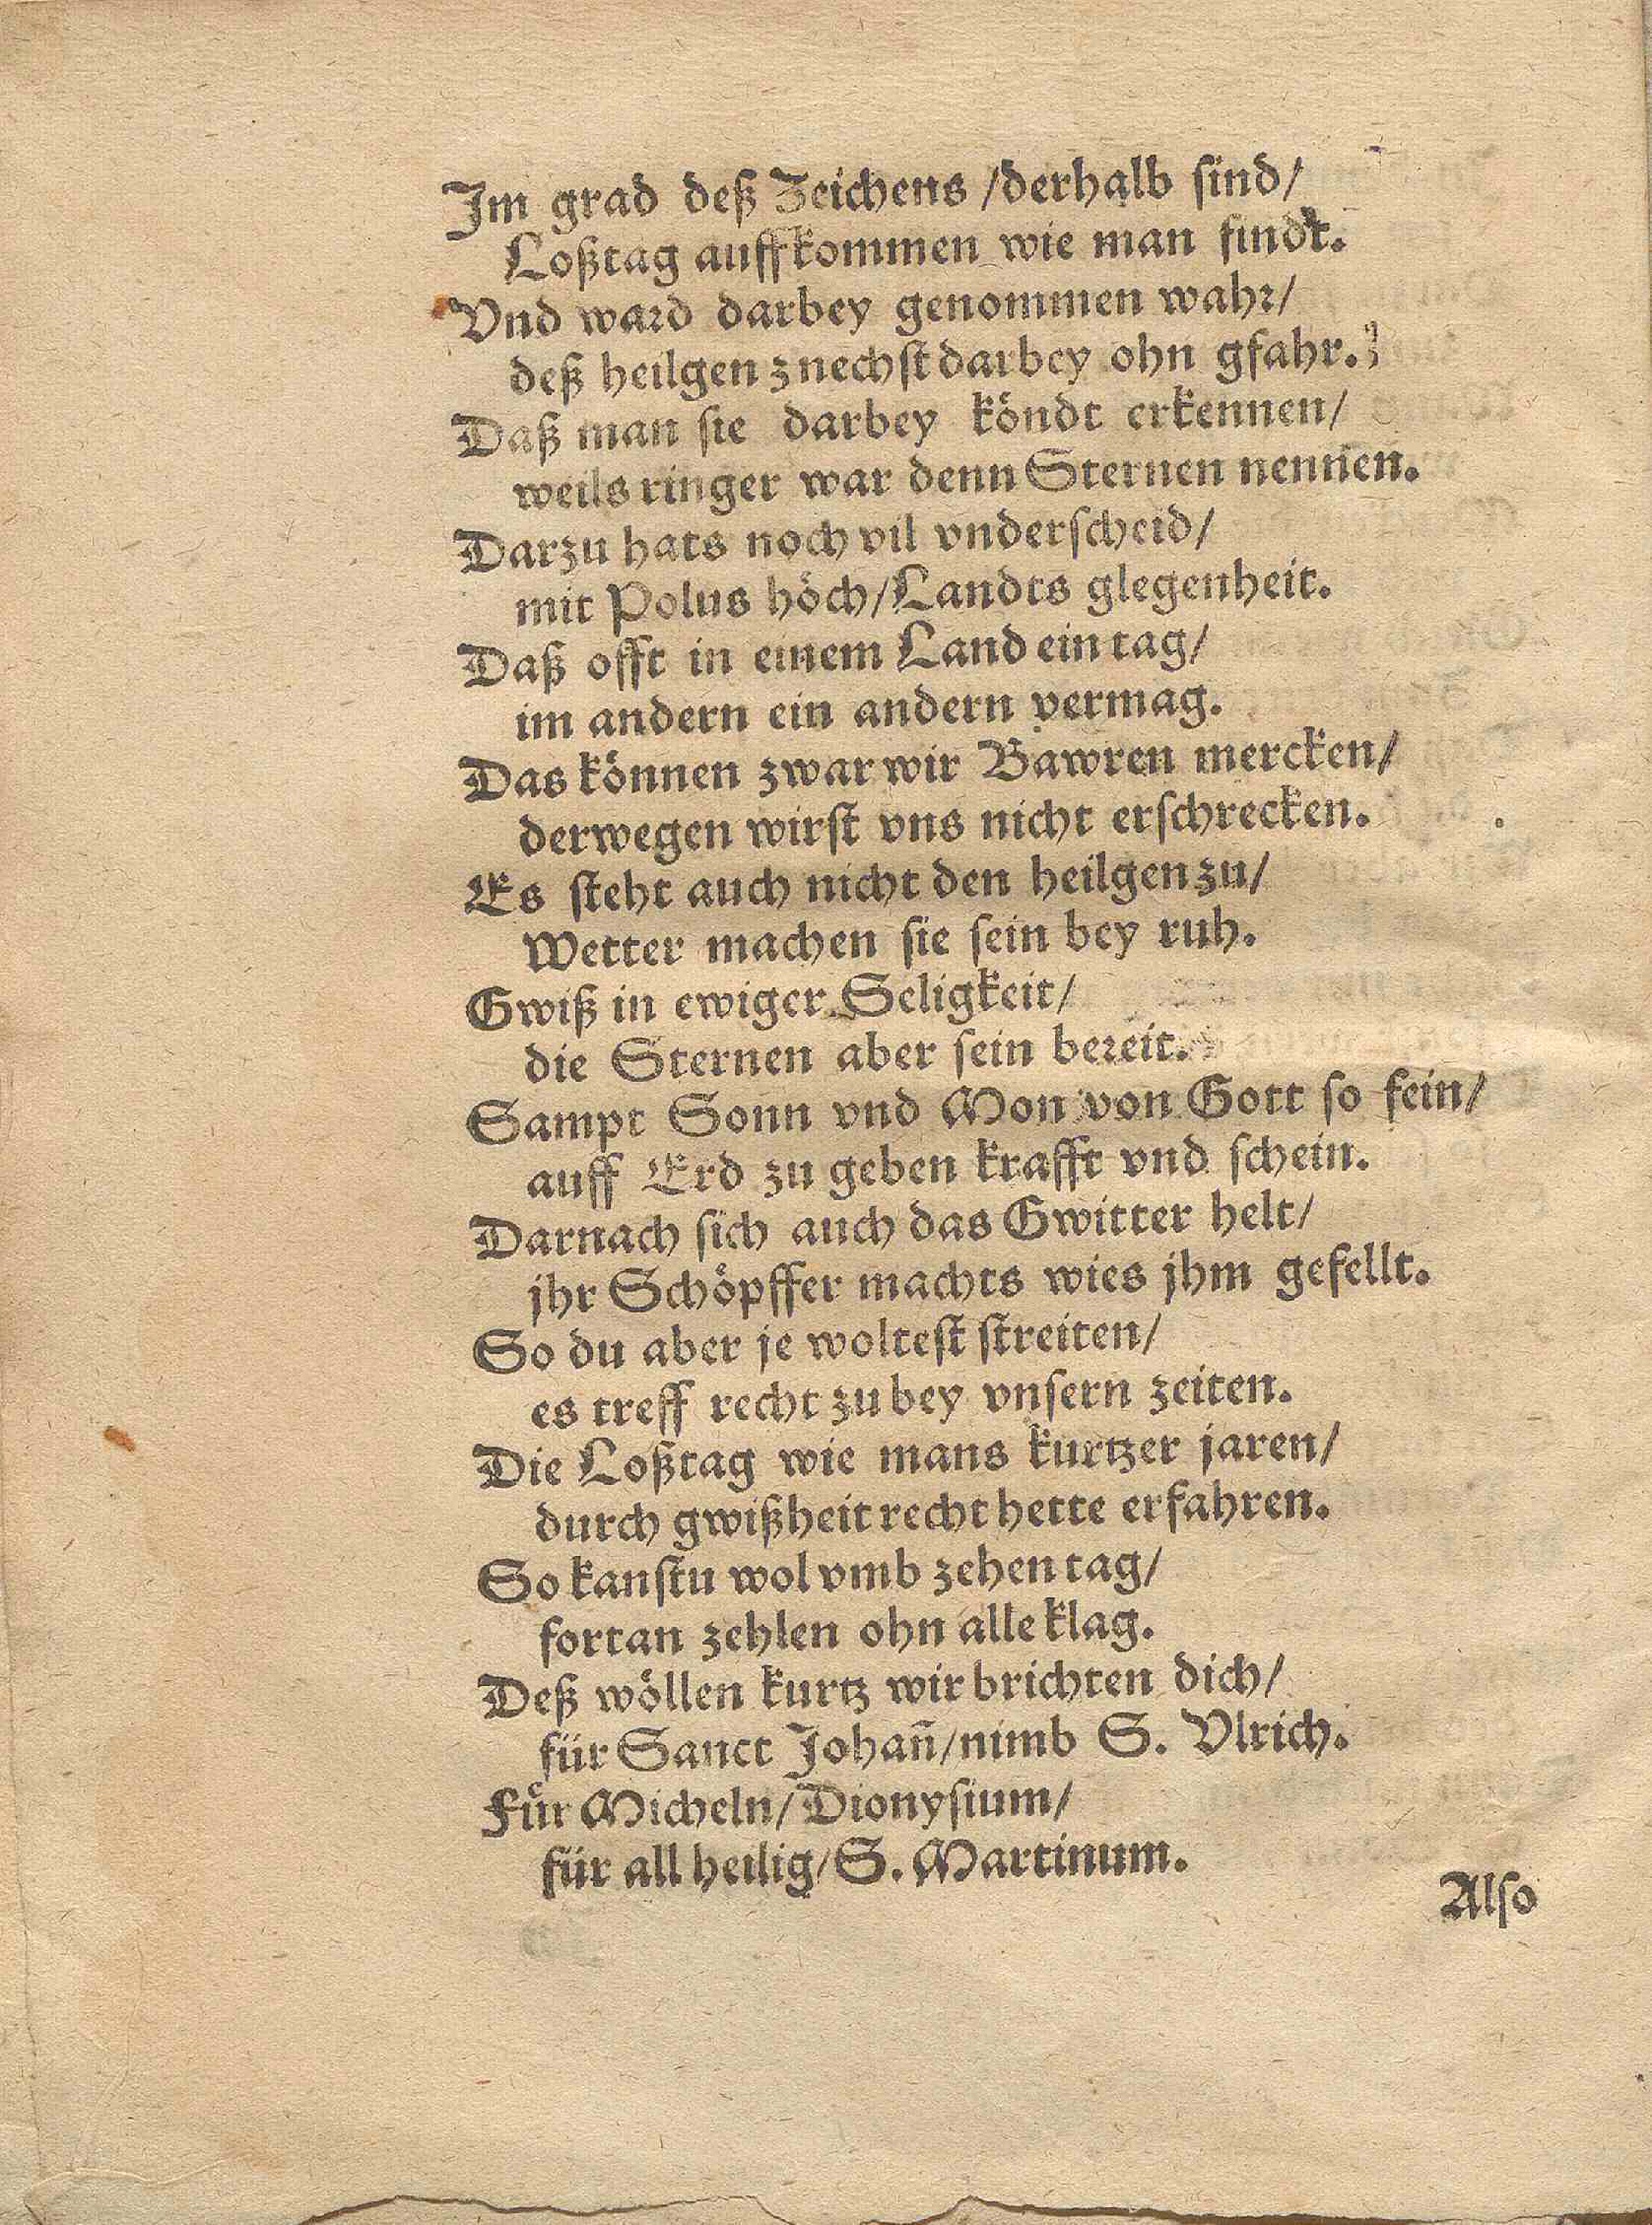 Im grad deß Zeichens / derhalb sind /
Loßtag auffkommen wie man findt.
Vnd ward darbey genommen wahr /
deß heilgen znechst darbey ohn gfahr.
Daß man sie darbey köndt erkennen /
weils ringer war denn Sternen nennen.
Darzu hats noch vil vnderscheid /
mit Polus höch / Landts glegenheit.
Daß offt in einem Land ein tag /
im andern ein andern vermag.
Das können zwar wir Bawren mercken /
derwegen wirst vns nicht erschrecken.
Es steht auch nicht den heilgen zu /
Wetter machen sie sein bey ruh.
Gwiß in ewiger Seligkeit /
die Sternen aber sein bereit.
Sampt Sonn vnd Mon von Gott so fein /
auff Erd zu geben krafft vnd schein.
Darnach sich auch das Gwitter helt /
jhr Schöpffer machts wies jhm gefellt.
So du aber je woltest streiten /
es treff recht zu bey vnsern zeiten.
Die Loßtag wie mans kurtzer jaren /
durch gwißheit recht hette erfahren.
So kanstu wol vmb zehen tag /
fortan zehlen ohn alle klag.
Deß wöllen kurtz wir brichten dich /
für Sanct Johan̄ / nimb S. Vlrich.
Für Micheln / Dionysium /
für all heilig / S. Martinum.
Also